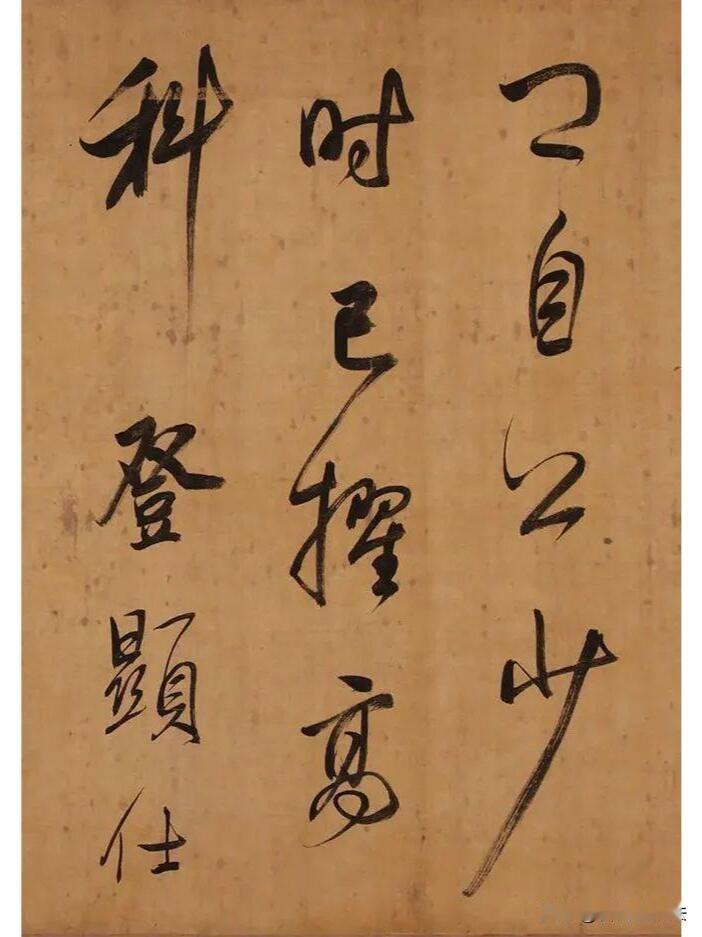 自公少
时已擢高
科登顯仕